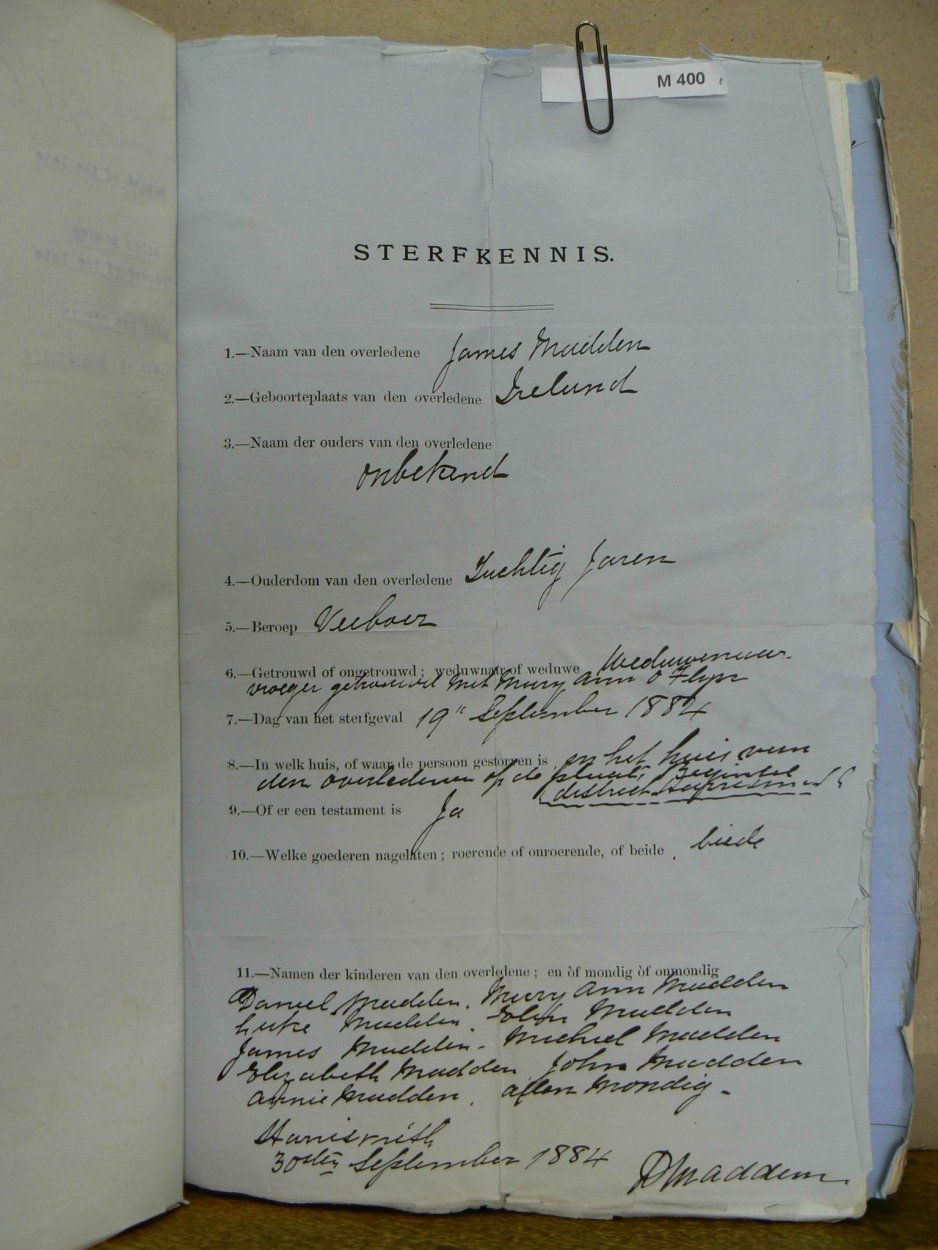 M 400
STERFKENNIS.
1.—Naam van den overledene James Madden
2.—Geboorteplaats van den overledene Ireland
3.—Naam der ouders van den overledene
onbekend
4.—Ouderdom van den overledene Tachtig Jaren
5.—Beroep Veeboer
6.—Getrouwd of ongetrouwd; weduwnaar of weduwe Weduwenaar
vroeger getrouwd met Mary Ann O Flyn
7.—Dag van het sterfgeval 19n September 1884
8.—In welk huis, of waar de persoon gestorven is in het huis van
den overledenen op de plaats
district Harrismith
9.—Of er een testament is Ja
10.—Welke goederen nagelaten; roerende of onroerende, of beide, biede
11.—Namen der kinderen van den overledene; en òf mondig òf onmondig
Daniel Madden. Mary Ann Madden
Luke Madden. Ellen Madden
James Madden. Michiel Madden
Elizabeth Madden John Madden
Annie Madden. allen Mondig.
Harrismith
30sten September 1884
D Madden